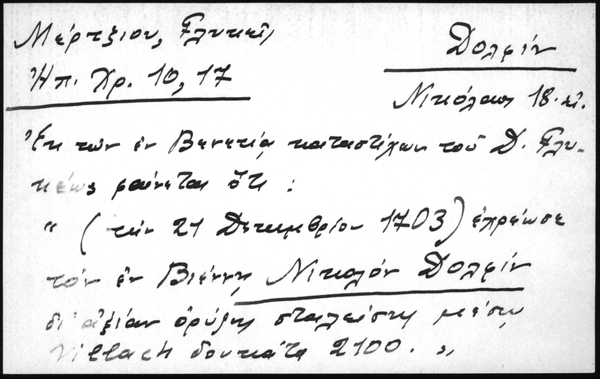 Μέρτζιου, Γλυκεῖς
Δολφίν
Ἠπ. Χρ. 10, 17
Νικόλαος 18. αἰ.
Ἐκ τῶν ἐν Βενετίᾳ καταστίχων τοῦ Δ. Γλυ-
κέως φαίνεται ὅτι :
" (τὴν 21 Δεκεμβρίου 1703) ἐχρέωσε
τὸν ἐν Βιέννῃ Νικολὸν Δολφὶν
δι' ἀξίαν ὀρύζης σταλείσης μέσῳ
Villach δουκάτα 2100. "